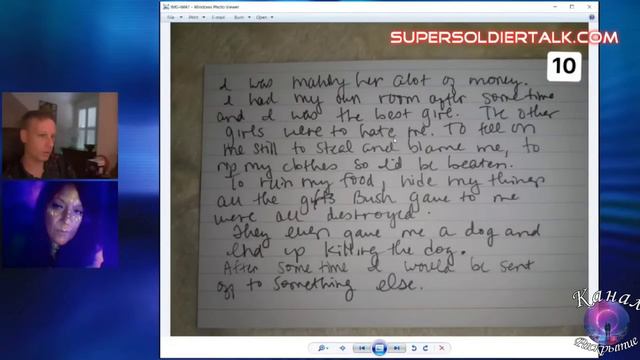 IMG-WA7 - Windows Photo Viewer
File Print E-mail Burn Open
SUPERSOLDIERTALK.COM
10
I was making her alot of money.
I had my own room after sometime
and I was the best girl. The other
girls were to hate me. To tell on
me still to steal and blame me, to
rip my clothes so I'd be beaten.
To ruin my food, hide my things
all the gifts Bush gave to me
were all destroyed.
They even gave me a dog and
end up killing the dog.
After some time I would be sent
off to something else.
Канал
Раскрытие